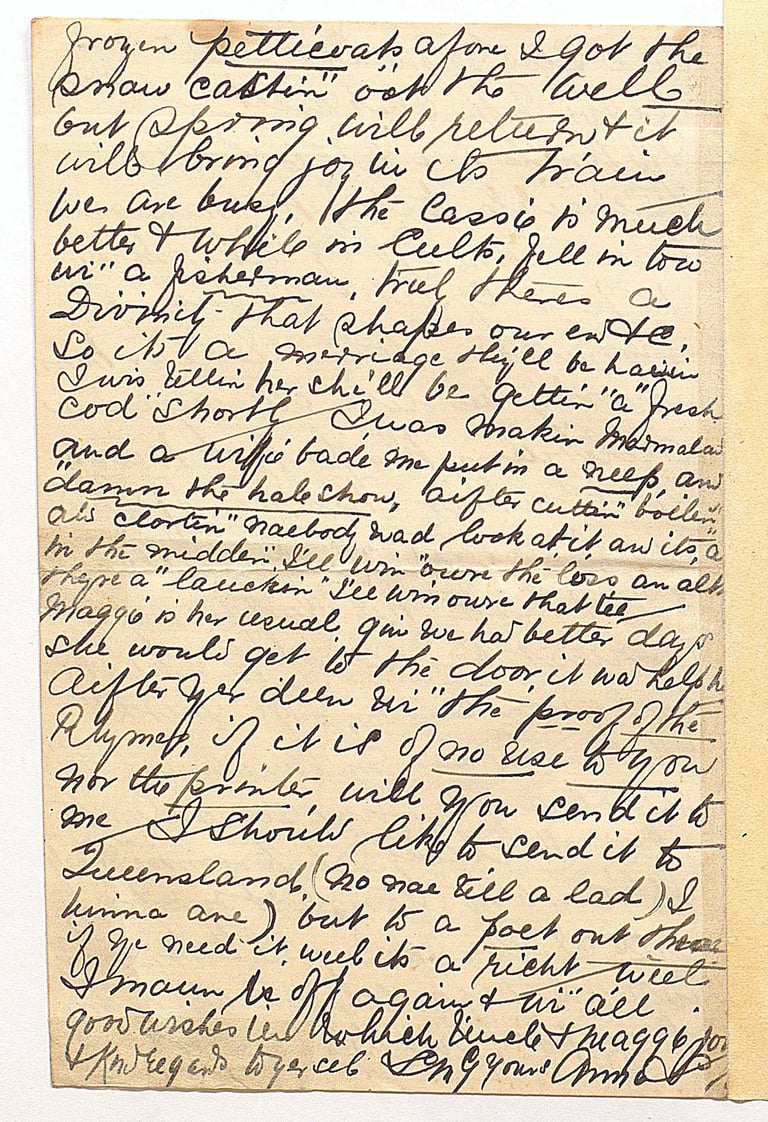 frozen petticoats afore I got the
snaw castin" oot the well
but spring will return & it
will bring joy in its train
we are busy, the Cassie is much
better & while in Cults, fell in tow
wi" a fisherman, truly theres a
Divinity that shapes our end &c,
So its a merriage they'll be haein
I wis tellin her she'll be gettin" "a" fresh
cod" shortly I was makin Marmalad
and a wifie bade me put in a neep, an
"damn the hale show, aifter cuttin" boilin"
an clortin" naebody wad look at it an its "a
in the midden". I'll win "owre the loss an alth
theyre a" lauchin" I'll win owre that tee
Maggie is her usual, gin we had better days
she would get to the door, it wad help h
Aifter yer deen wi" the proof of the
Rhymes, if it is of no use to you
nor the printer, will you send it to
me I should like to send it to
Queensland, (no nae till a lad) I
hinna ane), but to a poet out there
if ye need it, weel its a richt weel
I maun be off again & wi" all
good wishes in which Uncle & Maggie jo
& Kind regards to yersel Yours Anna